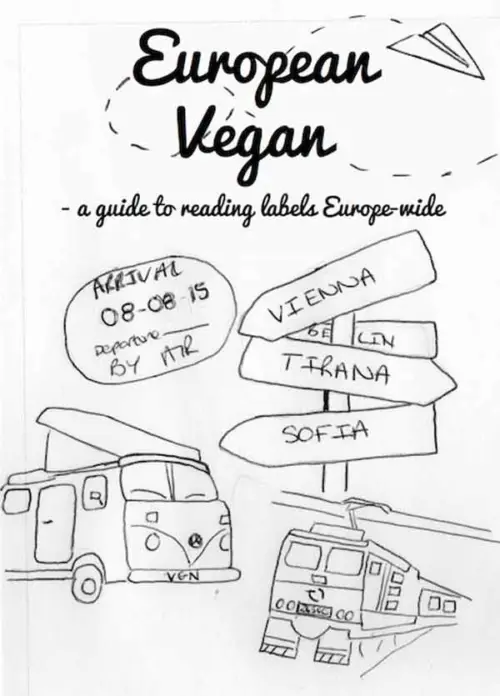 European
Vegan
- a guide to reading labels Europe-wide
ARRIVAL
08-08-15
Departure
BY AIR
VIENNA
BE LIN
TIRANA
SOFIA
R
VGN